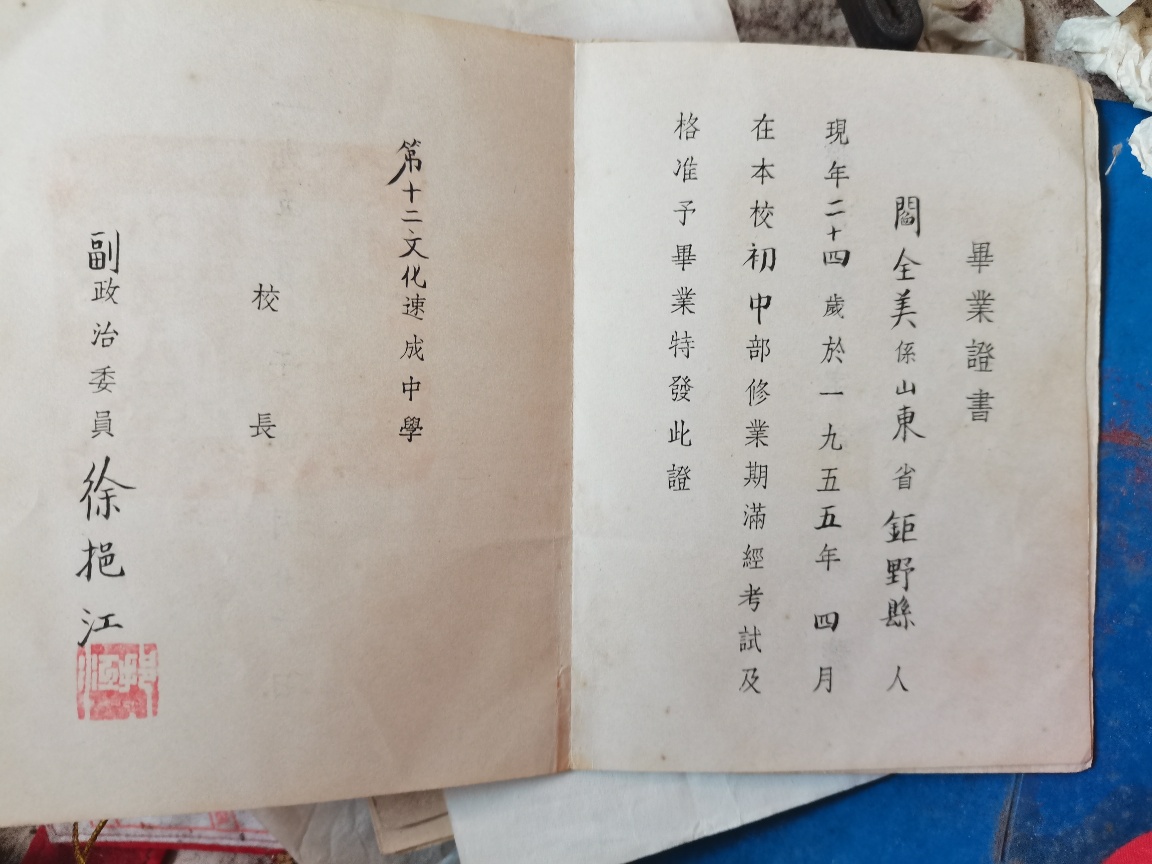 畢業證書
閻全美係山東省鉅野縣人
現年二十四歲於一九五五年四月
在本校初中部修業期滿經考試及
格准予畢業特發此證
第十二文化速成中學
校長
副政治委員徐挹江